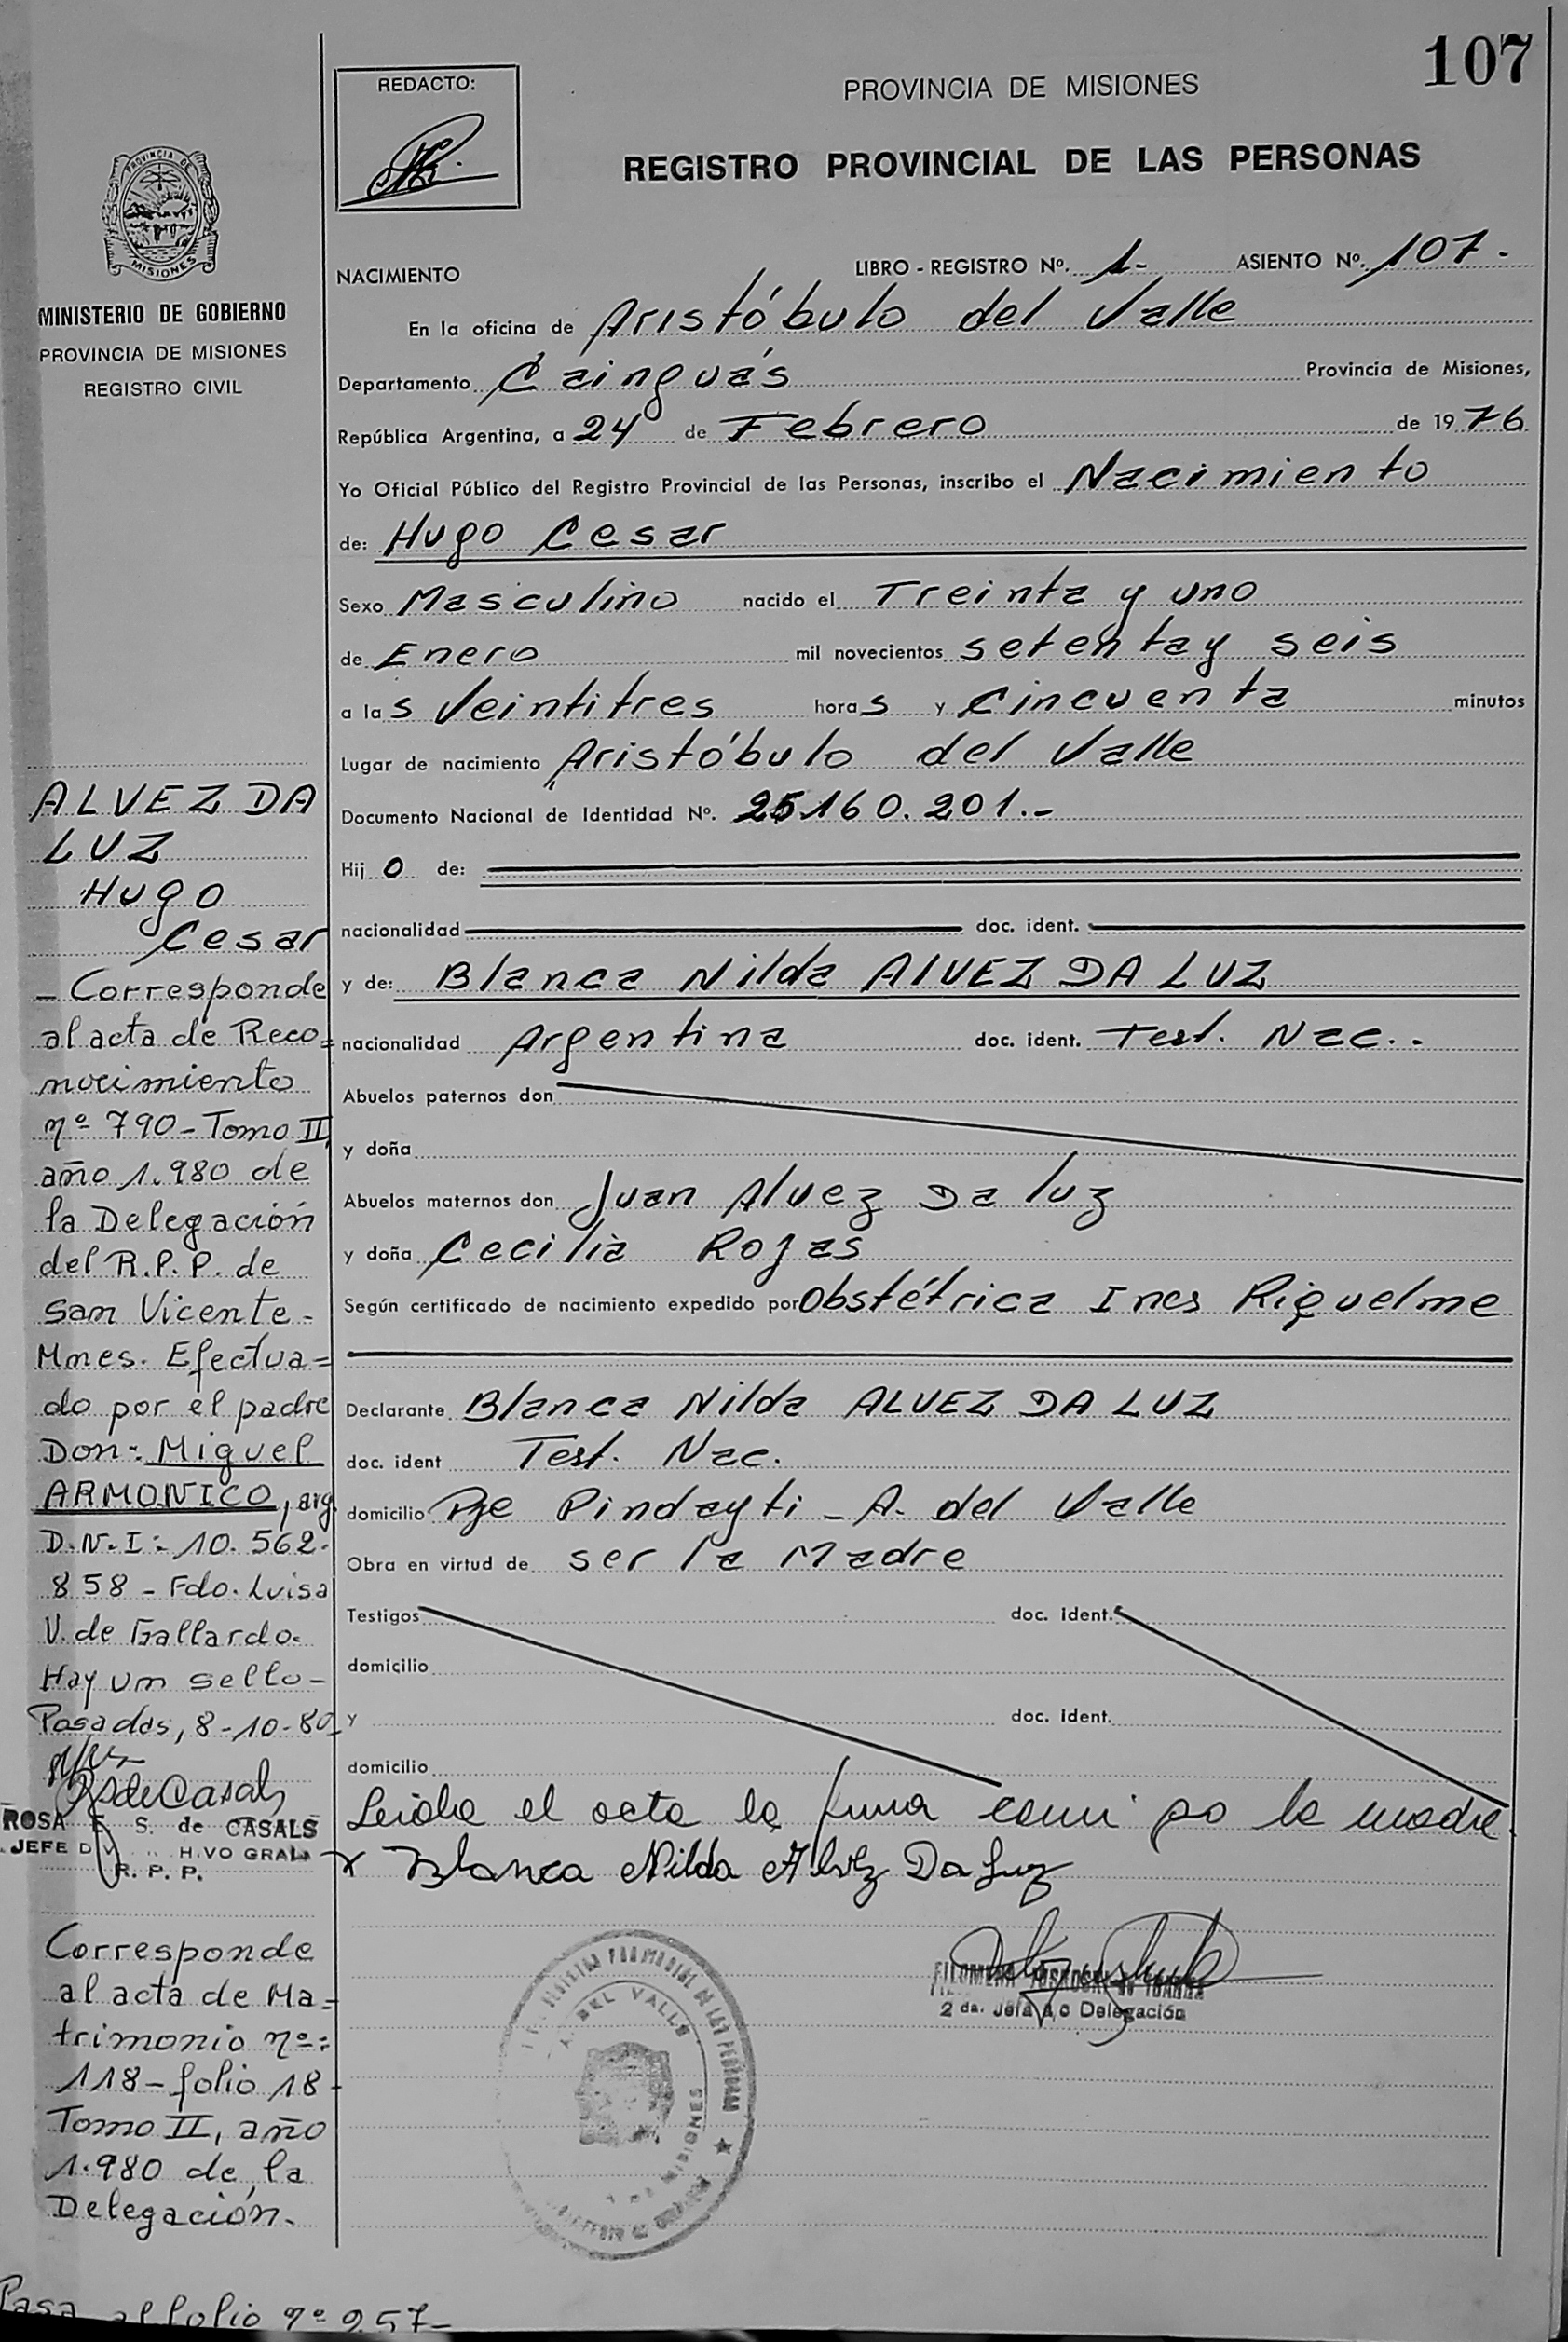 107
REDACTO:
PROVINCIA DE MISIONES
REGISTRO PROVINCIAL DE LAS PERSONAS
PROVINCIA DE
MISIONES
MINISTERIO DE GOBIERNO
PROVINCIA DE MISIONES
REGISTRO CIVIL
NACIMIENTO
LIBRO - REGISTRO Nº. 1- ASIENTO Nº. 107.-
En la oficina de Aristóbulo del Valle
Departamento Cainguás Provincia de Misiones,
República Argentina, a 24 de Febrero de 1976
Yo Oficial Público del Registro Provincial de las Personas, inscribo el Nacimiento
de: Hugo Cesar
Sexo Masculino nacido el Treinta y uno
de Enero mil novecientos setenta y seis
a las Veintitres horas y Cincuenta minutos
Lugar de nacimiento Aristóbulo del Valle
Documento Nacional de Identidad Nº. 25.160.201.-
Hijo de:
nacionalidad doc. ident.
y de: Blanca Nilda AlVEZ DA LUZ
nacionalidad Argentina doc. ident. Test. Nac..
Abuelos paternos don
y doña
Abuelos maternos don Juan Alvez Da luz
y doña Cecilia Rojas
Según certificado de nacimiento expedido por Obstétrica Ines Riquelme
Declarante Blanca Nilda ALVEZ DA LUZ
doc. ident Test. Nac.
domicilio Pje Pindayti - A. del Valle
Obra en virtud de ser la Madre
Testigos doc. ident.
domicilio
y doc. ident.
domicilio
Leida el acta la firma por la madre.
x Blanca Nilda Alvez Da Luz
2 da. Jefa a,c Delegación
DEL VALLE
MISIONES
ALVEZ DA
LUZ
Hugo
Cesar
- Corresponde
al acta de Reco=
nocimiento
nº 790 - Tomo II,
año 1.980 de
la Delegación
del R.P.P. de
San Vicente -
Mnes. Efectua=
do por el padre
Don: Miguel
ARMONICO, arg.
D.N.I: 10.562.
858 - Fdo. Luisa
V. de Gallardo.
Hay un sello -
Posadas, 8-10-80
RSdeCasals
ROSA E. S. de CASALS
JEFE H.VO GRAL.
R. P. P.
Corresponde
al acta de Ma=
trimonio nº:
118 - folio 18 -
Tomo II, año
1.980 de la
Delegación.
Pasa al folio nº 257-